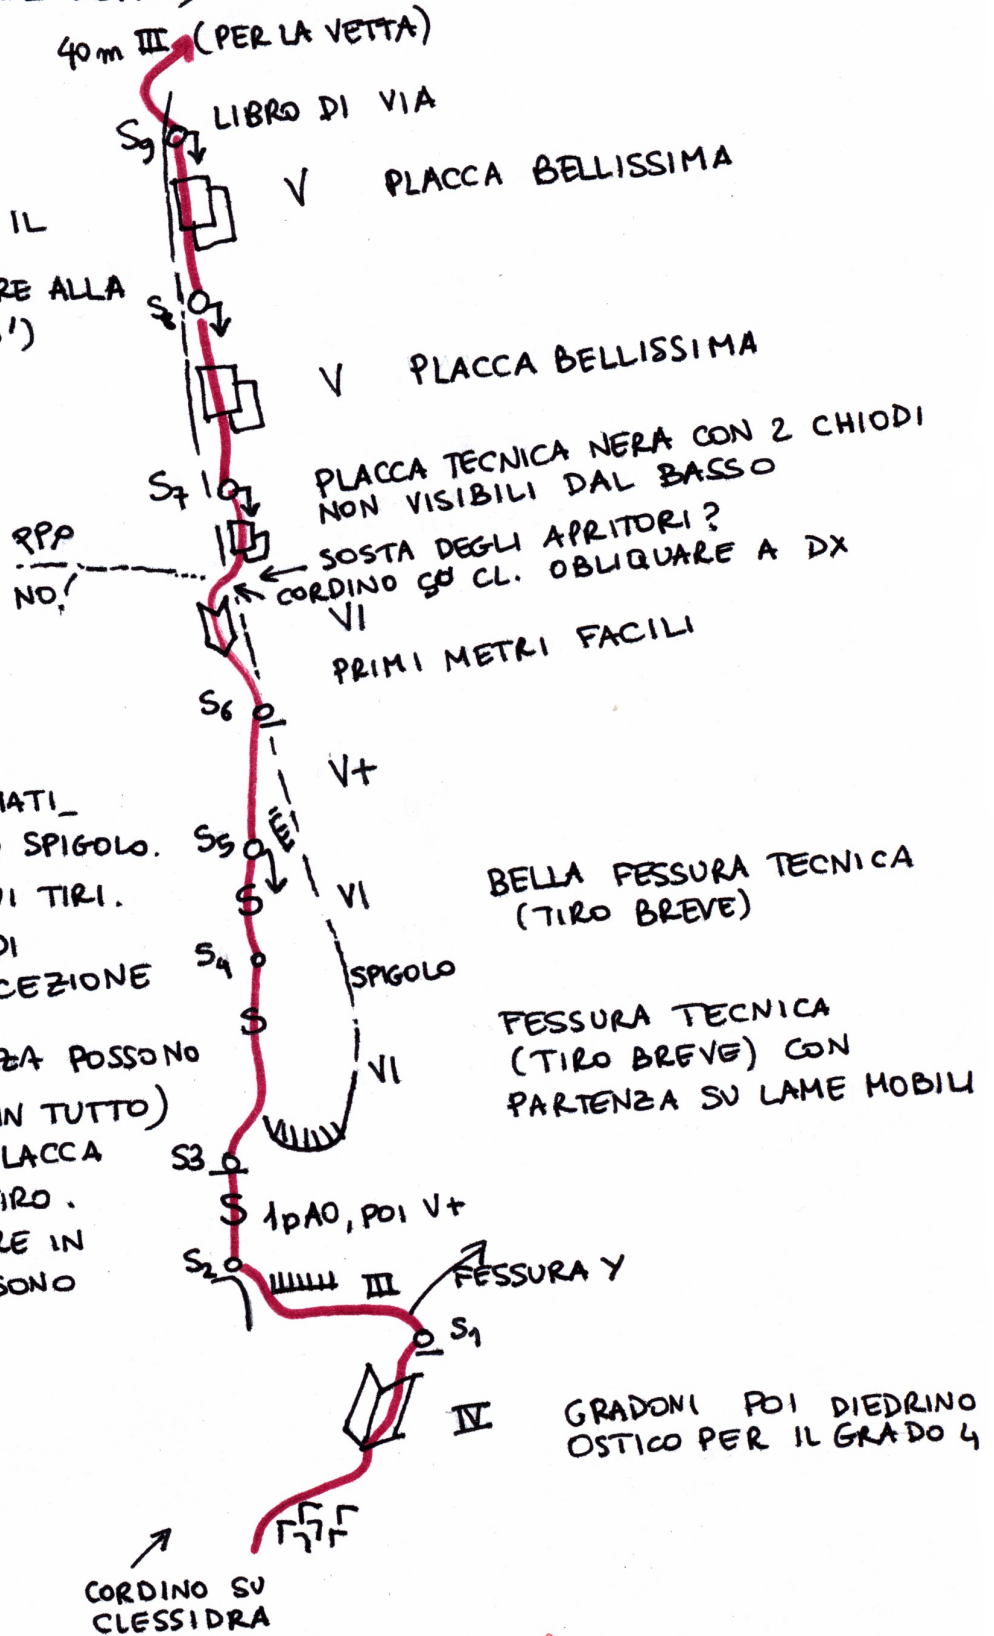 40 m III (PER LA VETTA)
LIBRO DI VIA
S9
V PLACCA BELLISSIMA
IL
RE ALLA
')
S8
V PLACCA BELLISSIMA
S7
PLACCA TECNICA NERA CON 2 CHIODI
NON VISIBILI DAL BASSO
SOSTA DEGLI APRITORI?
CORDINO SU CL. OBLIQUARE A DX
PPP
NO!
VI
PRIMI METRI FACILI
S6
V+
IATI_
SPIGOLO.
S5
VI TIRI.
VI
BELLA FESSURA TECNICA
(TIRO BREVE)
DI
CEZIONE
S4
SPIGOLO
ZA POSSONO
IN TUTTO)
LACCA
IRO.
RE IN
SONO
VI
FESSURA TECNICA
(TIRO BREVE) CON
PARTENZA SU LAME MOBILI
S3
1pA0, POI V+
S2
III
FESSURA Y
S1
IV
GRADONI POI DIEDRINO
OSTICO PER IL GRADO 4
CORDINO SU
CLESSIDRA